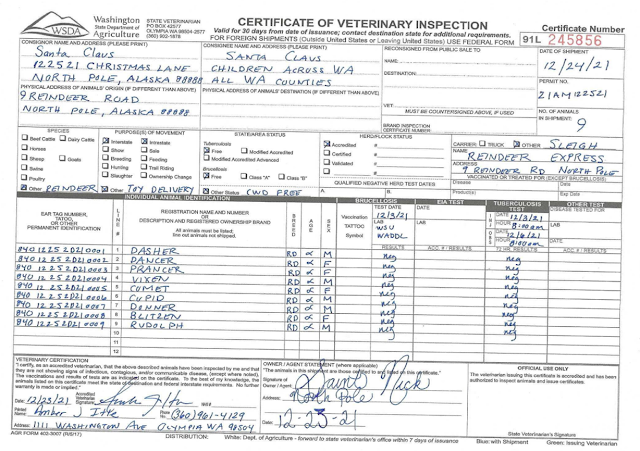 Washington State Department of Agriculture
WSDA
STATE VETERINARIAN
PO BOX 42577
OLYMPIA WA 98504-2577
(360) 902-1878
CERTIFICATE OF VETERINARY INSPECTION
Valid for 30 days from date of issuance; contact destination state for additional requirements.
FOR FOREIGN SHIPMENTS (Outside United States or Leaving United States) USE FEDERAL FORM
Certificate Number
91L 245856
CONSIGNOR NAME AND ADDRESS (PLEASE PRINT)
Santa Claus
122521 CHRISTMAS LANE
NORTH POLE, ALASKA 88888
PHYSICAL ADDRESS OF ANIMALS' ORIGIN (IF DIFFERENT THAN ABOVE)
9 REINDEER ROAD
NORTH POLE, ALASKA 88888
CONSIGNEE NAME AND ADDRESS (PLEASE PRINT)
SANTA CLAUS
CHILDREN ACROSS WA
ALL WA COUNTIES
PHYSICAL ADDRESS OF ANIMALS' DESTINATION (IF DIFFERENT THAN ABOVE)
RECONSIGNED FROM PUBLIC SALE TO
NAME:
DESTINATION:
VET
MUST BE COUNTERSIGNED ABOVE, IF USED
BRAND INSPECTION
CERTIFICATE NUMBER:
DATE OF SHIPMENT
12/24/21
PERMIT NO.
21AM122521
NO. OF ANIMALS
IN SHIPMENT:
9
SPECIES
Beef Cattle Dairy Cattle
Horses
Sheep Goats
Swine
Poultry
Other REINDEER
PURPOSE(S) OF MOVEMENT
Interstate Intrastate
Show Sale
Breeding Feeding
Hunting Trail Riding
Slaughter Ownership Change
Other TOY DELIVERY
STATE/AREA STATUS
Tuberculosis
Free Modified Accredited
Modified Accredited Advanced
Brucellosis
Free Class "A" Class "B"
Other Status CWD FREE
HERD/FLOCK STATUS
Accredited #
Certified #
Validated #
#
QUALIFIED NEGATIVE HERD TEST DATES
A. B.
CARRIER: TRUCK OTHER SLEIGH
NAME
REINDEER EXPRESS
ADDRESS
9 REINDEER RD NORTH POLE
VACCINATED OR TREATED FOR (EXCEPT BRUCELLOSIS)
Disease Date
Product(s) Exp
INDIVIDUAL ANIMAL IDENTIFICATION
EAR TAG NUMBER,
TATOO,
OR OTHER
PERMANENT IDENTIFICATION
LINE #
REGISTRATION NAME AND NUMBER OR
DESCRIPTION AND REGISTERED OWNERSHIP BRAND
All animals must be listed;
line out animals not shipped.
BREED AGE SEX
BRUCELLOSIS
Vaccination
TATTOO
Symbol
TEST DATE
12/3/21
LAB
WSU
WADDL
RESULTS
EIA TEST
DATE
LAB
ACC. # / RESULTS
TUBERCULOSIS TEST
12/3/21
HOUR 8:00am
12/6/21
HOUR 8:00am
72 HR. RESULTS
OTHER TEST
DISEASE TESTED FOR
LAB
DATE
ACC. # / RESULTS
840 1225 2021 0001 1 DASHER RD ∝ M neg neg
840 1225 2021 0002 2 DANCER RD ∝ F neg neg
840 1225 2021 0003 3 PRANCER RD ∝ M neg neg
840 1225 2021 0004 4 VIXEN RD ∝ F neg neg
840 1225 2021 0005 5 COMET RD ∝ M neg neg
840 1225 2021 0006 6 CUPID RD ∝ M neg neg
840 1225 2021 0007 7 DONNER RD ∝ F neg neg
840 1225 2021 0008 8 BLITZEN RD ∝ F neg neg
840 1225 2021 0009 9 RUDOLPH RD ∝ M neg neg
10
11
12
VETERINARY CERTIFICATION
"I certify, as an accredited veterinarian, that the above described animals have been inspected by me and that
they are not showing signs of infectious, contagious, and/or communicable disease, (except where noted).
The vaccinations and results of tests are as indicated on the certificate. To the best of my knowledge, the
animals listed on this certificate meet the state of destination and federal interstate requirements. No further
warranty is made or implied."
Date: 12/23/21 Accredited Veterinarian Signature
Printed Name: Amber J Itle Phone No: (360) 961-4129
Address: 1111 WASHINGTON AVE OLYMPIA WA 98504
OWNER / AGENT STATEMENT (where applicable)
"The animals in this shipment are those certified to and listed on this certificate."
Signature of
Owner / Agent: Saint Nick
Address: North Pole
Date: 12-23-21
OFFICIAL USE ONLY
The veterinarian issuing this certificate is accredited and has been
authorized to inspect animals and issue certificates.
State Veterinarian's Signature
AGR FORM 402-3007 (R/6/17)
DISTRIBUTION: White: Dept. of Agriculture - forward to state veterinarian's office within 7 days of issuance Blue: with Shipment Green: Issuing Veterinarian